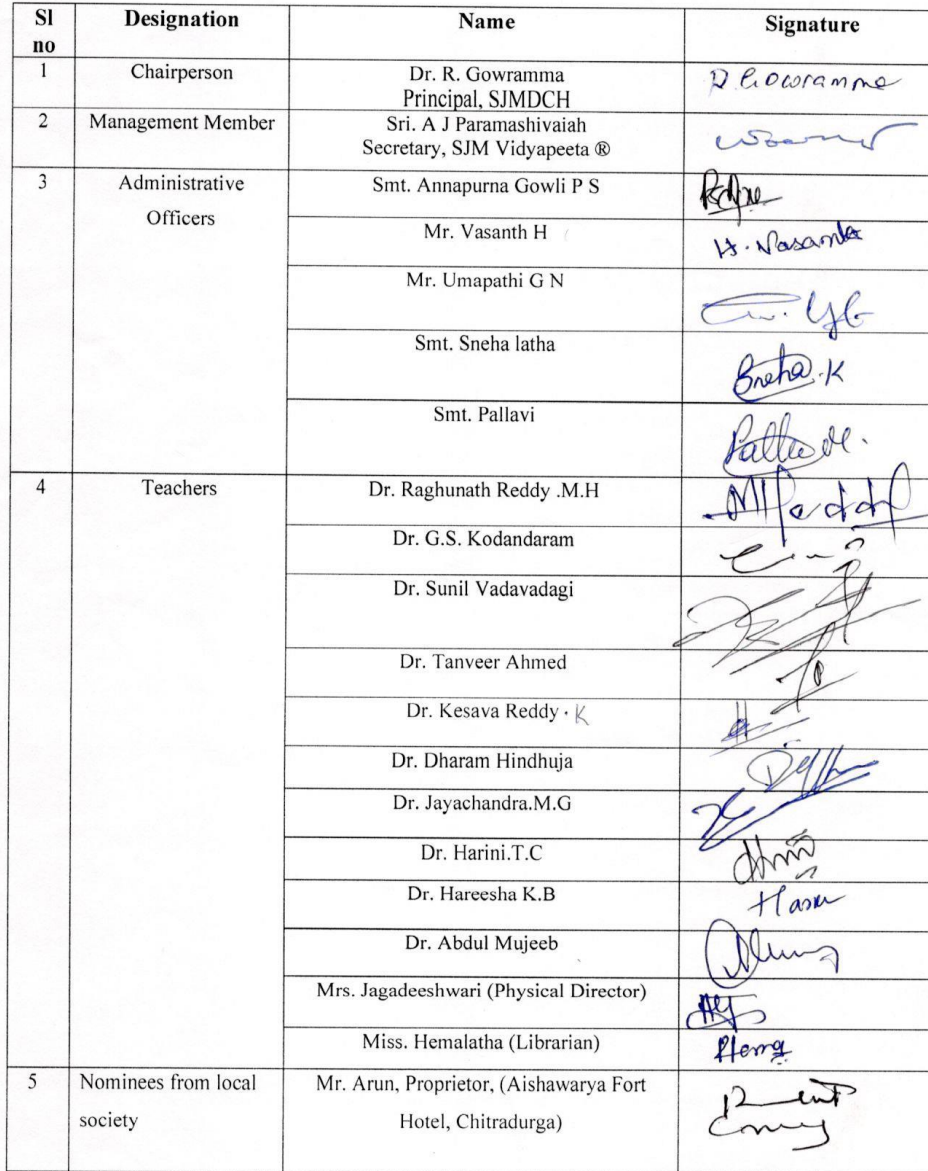 Sl no Designation Name Signature
1 Chairperson Dr. R. Gowramma R. Gowramma
Principal, SJMDCH
2 Management Member Sri. A J Paramashivaiah
Secretary, SJM Vidyapeeta ®
3 Administrative Officers Smt. Annapurna Gowli P S
Mr. Vasanth H H. Vasantha
Mr. Umapathi G N
Smt. Sneha latha Sneha.K
Smt. Pallavi
4 Teachers Dr. Raghunath Reddy .M.H
Dr. G.S. Kodandaram
Dr. Sunil Vadavadagi
Dr. Tanveer Ahmed
Dr. Kesava Reddy . K
Dr. Dharam Hindhuja
Dr. Jayachandra.M.G
Dr. Harini.T.C
Dr. Hareesha K.B
Dr. Abdul Mujeeb
Mrs. Jagadeeshwari (Physical Director)
Miss. Hemalatha (Librarian)
5 Nominees from local Mr. Arun, Proprietor, (Aishawarya Fort
society Hotel, Chitradurga)